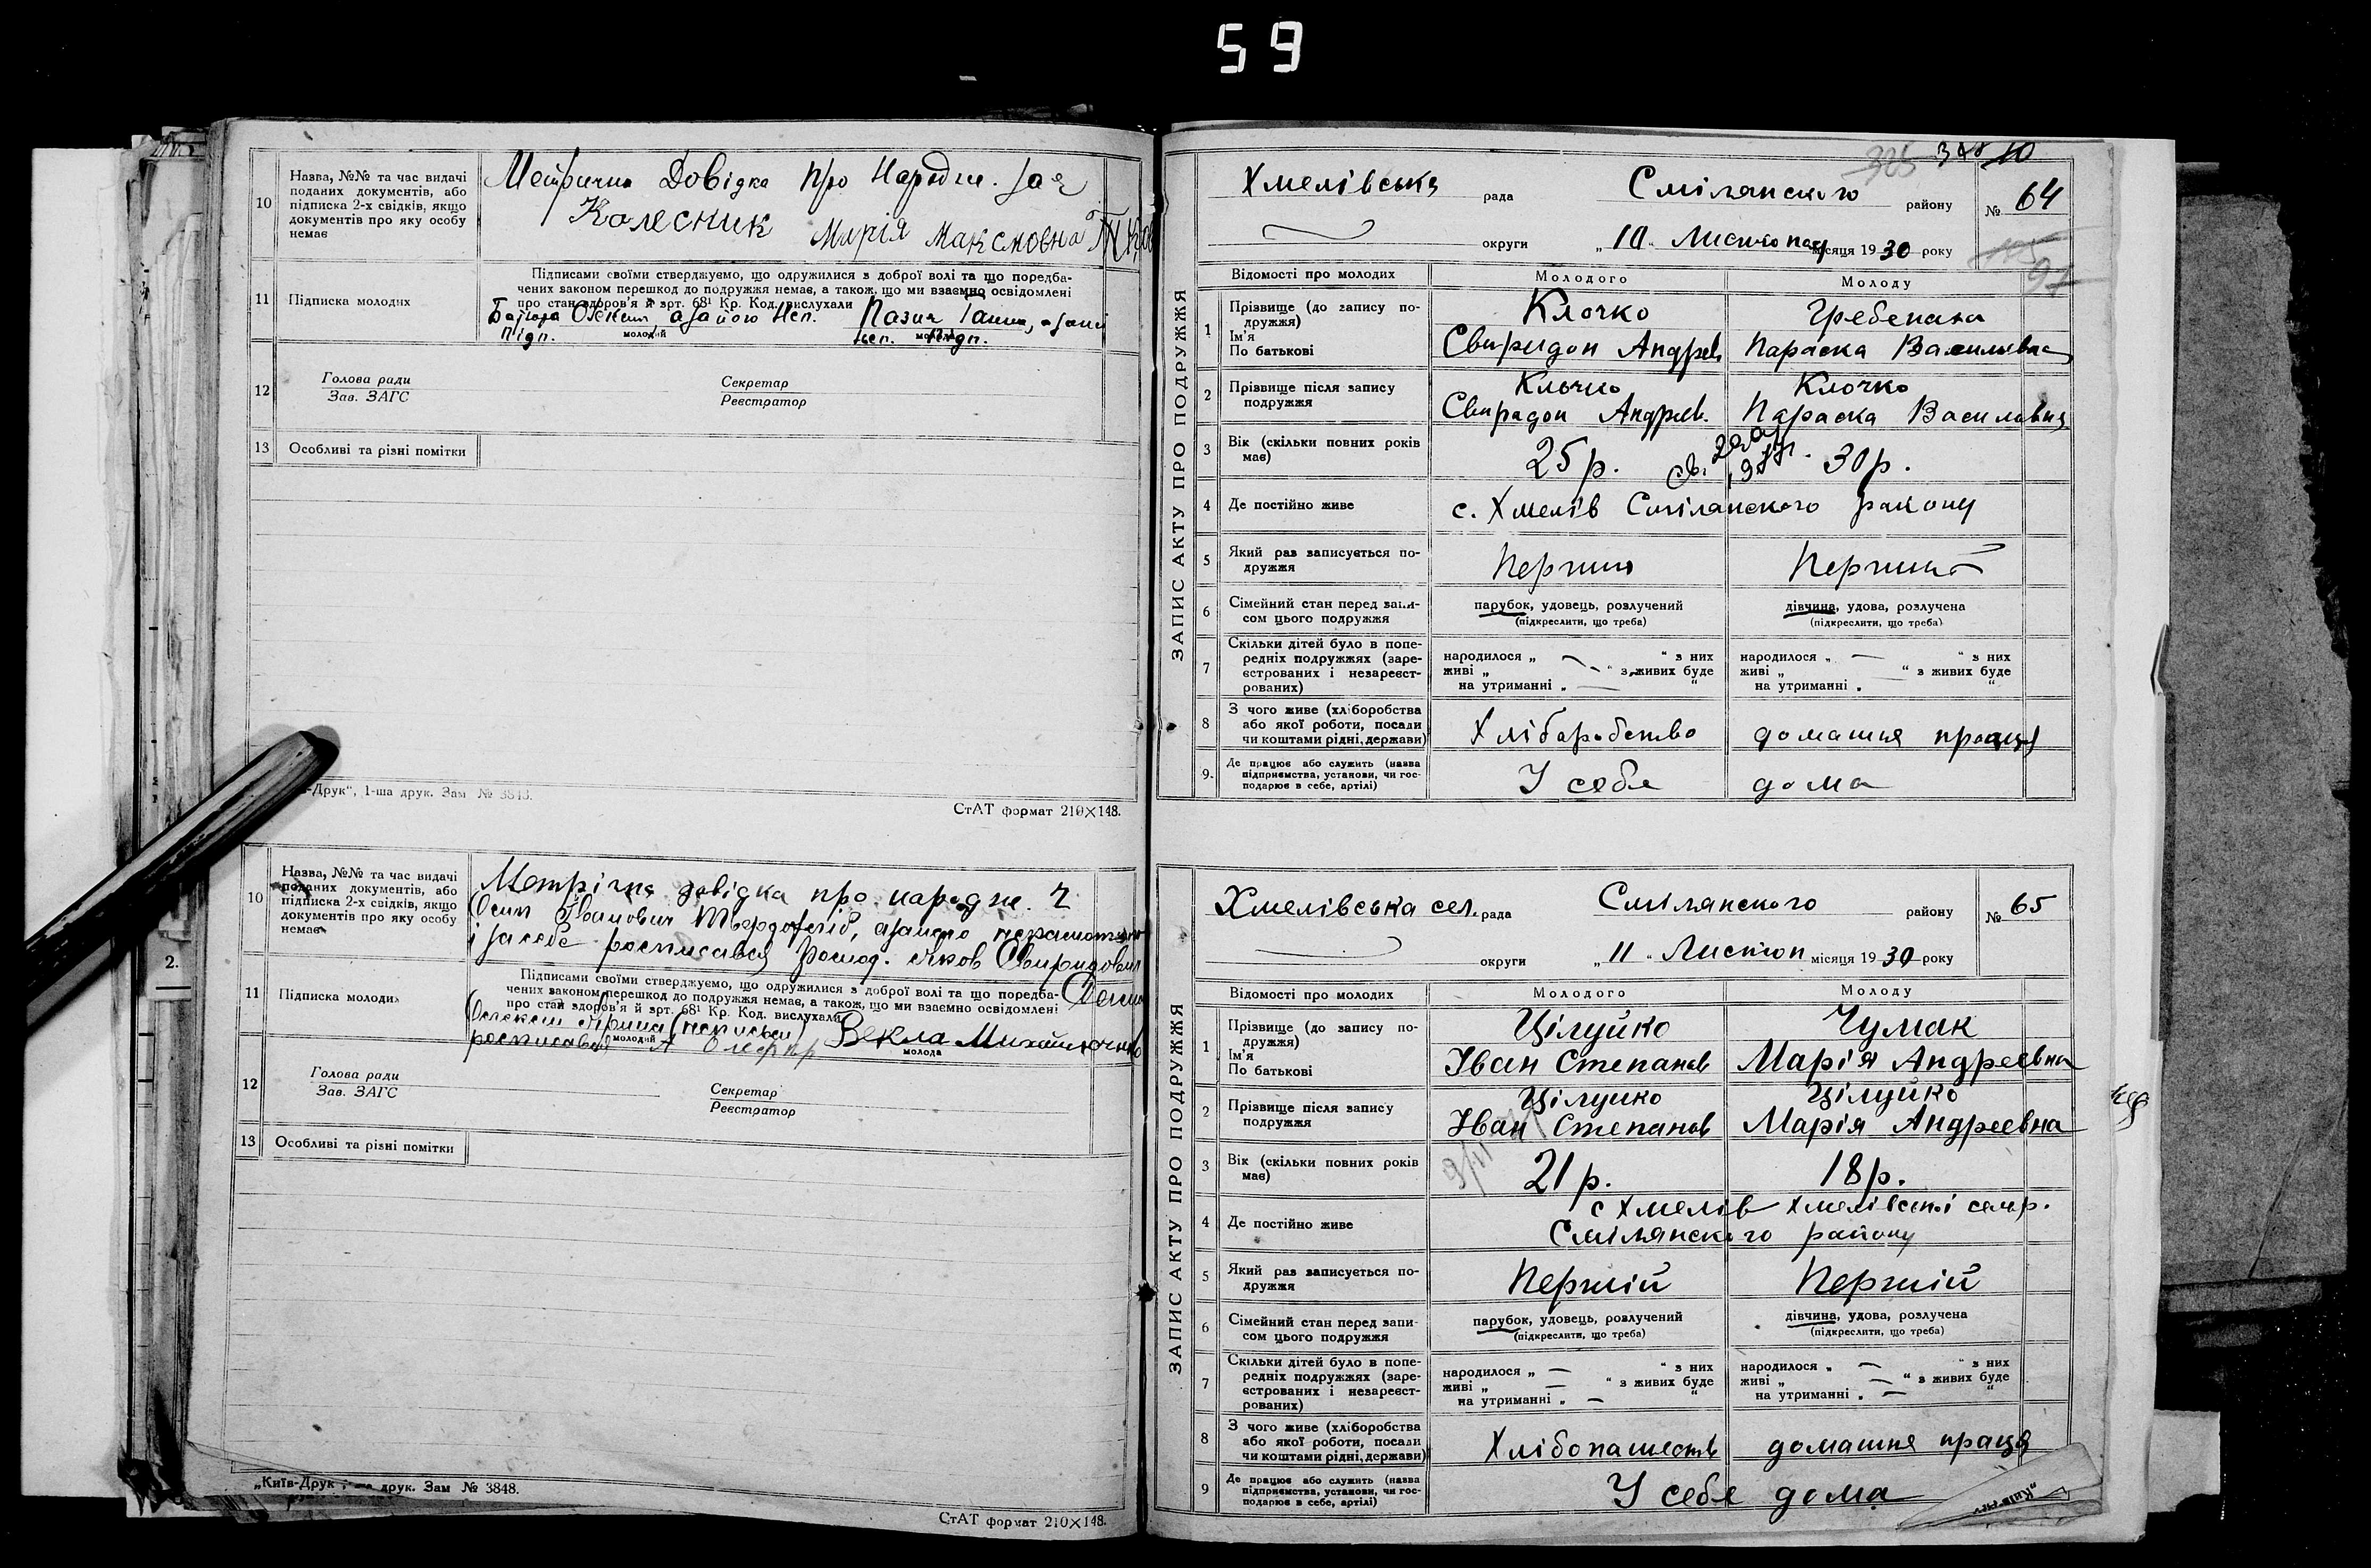 59
10
Назва, №№ та час видачі
поданих документів, або
підписка 2-х свідків, якщо
документів про яку особу
немає
Метрична Довідка про Народж.
Колесник Марія Максмовна
11
Підписка молодих
Підписами своїми стверджуємо, що одружилися з доброї волі та що поредба-
чених законом перешкод до подружжя немає, а також, що ми взаємно освідомлені
про стан здоров'я й зрт. 68¹ Кр. Код. вислухали
молодий
12
Голова ради
Зав. ЗАГС
Секретар
Реєстратор
13
Особливі та різні помітки
-Друк", 1-ша друк. Зам № 3843.
СтАТ формат 210×148.
10
Назва, №№ та час видачі
поданих документів, або
підписка 2-х свідків, якщо
документів про яку особу
немає
Метрічна довідка про народж.
11
Підписка молодих
Підписами своїми стверджуємо, що одружилися з доброї волі та що поредба-
чених законом перешкод до подружжя немає, а також, що ми взаємно освідомлені
про стан здоров'я й зрт. 68¹ Кр. Код. вислухали
молодий
молода
12
Голова ради
Зав. ЗАГС
Секретар
Реєстратор
13
Особливі та різні помітки
„Київ-Друк друк. Зам № 3848.
СтАТ формат 210×148.
2.
ЗАПИС АКТУ ПРО ПОДРУЖЖЯ
Хмелівська рада Смілянского району № 64
округи „10" Листопад місяця 1930 року
Відомості про молодих
Молодого
Молоду
1
Прізвище (до запису по-
дружжя)
Ім'я
По батькові
Клочко
Свиридон Андрев
Гребепана
Параска Василівна
2
Прізвище після запису
подружжя
Клочко
Свирадон Андрев.
Клочко
Параска Василовна
3
Вік (скільки повних років
має)
25 р.
30 р.
4
Де постійно живе
с. Хмелів Смілянского району
5
Який раз записується по-
дружжя
6
Сімейний стан перед запи-
сом цього подружжя
парубок, удовець, розлучений
(підкреслити, що треба)
дівчина, удова, розлучена
(підкреслити, що треба)
7
Скільки дітей було в попе-
редніх подружжях (заре-
єстрованих і незареєст-
рованих)
народилося „ — " з них
живі „ — " з живих буде
на утриманні „ — "
народилося „ — " з них
живі „ — " з живих буде
на утриманні „ "
8
З чого живе (хліборобства
або якої роботи, посади
чи коштами рідні, держави)
Хліборобство
домашня праця
9.
Де працює або служить (назва
підприємства, установи, чи гос-
подарює в себе, артілі)
У себе дома
ЗАПИС АКТУ ПРО ПОДРУЖЖЯ
Хмелівська сел. рада Смілянского району № 65
округи „11" Листоп місяця 1930 року
Відомості про молодих
Молодого
Молоду
1
Прізвище (до запису по-
дружжя)
Ім'я
По батькові
Цілуйко
Іван Степанов
Чумак
Марія Андреевна
2
Прізвище після запису
подружжя
Цілуйко
Іван Степанов
Цілуйко
Марія Андреевна
3
Вік (скільки повних років
має)
21 р.
18 р.
4
Де постійно живе
с Хмелів Хмелівскої сельр.
Смілянского району
5
Який раз записується по-
дружжя
Першій
Першій
6
Сімейний стан перед запи-
сом цього подружжя
парубок, удовець, розлучений
(підкреслити, що треба)
дівчина, удова, розлучена
(підкреслити, що треба)
7
Скільки дітей було в попе-
редніх подружжях (заре-
єстрованих і незареєст-
рованих)
народилося „ — " з них
живі „ — " з живих буде
на утриманні „ — "
народилося „ — " з них
живі „ — " з живих буде
на утриманні „ — "
8
З чого живе (хліборобства
або якої роботи, посади
чи коштами рідні, держави)
Хлібопашеств
домашня праця
9
Де працює або служить (назва
підприємства, установи, чи гос-
подарює в себе, артілі)
У себе дома